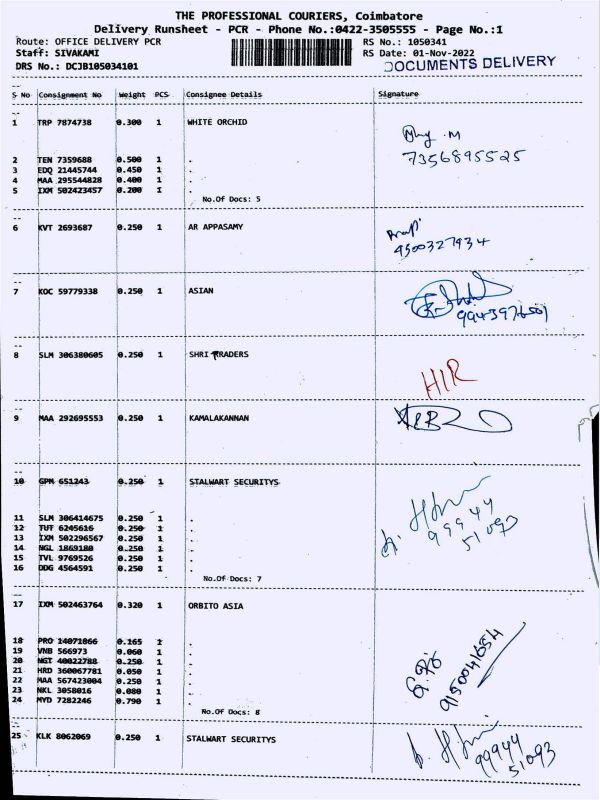 THE PROFESSIONAL COURIERS, Coimbatore
Delivery Runsheet - PCR - Phone No.:0422-3505555 - Page No.:1
Route: OFFICE DELIVERY PCR RS No.: 1050341
Staff: SIVAKAMI RS Date: 01-Nov-2022
DRS No.: DCJB105034101 DOCUMENTS DELIVERY
S No Consignment No Weight PCS Consignee Details Signature
1 TRP 7874738 0.300 1 WHITE ORCHID
M
7356895525
2 TEN 7359688 0.500 1 .
3 EDQ 21445744 0.450 1 .
4 MAA 295544828 0.400 1 .
5 IXM 502423457 0.200 1 .
No.Of Docs: 5
6 KVT 2693687 0.250 1 AR APPASAMY
9500327934
7 KOC 59779338 0.250 1 ASIAN
9943976501
8 SLM 306380605 0.250 1 SHRI TRADERS
HIR
9 MAA 292695553 0.250 1 KAMALAKANNAN
10 GPM 651243 0.250 1 STALWART SECURITYS
99944
51093
11 SLM 306414675 0.250 1 .
12 TUT 6245616 0.250 1 .
13 IXM 502296567 0.250 1 .
14 NGL 1869180 0.250 1 .
15 TVL 9769526 0.250 1 .
16 DDG 4564591 0.250 1 .
No.Of Docs: 7
17 IXM 502463764 0.320 1 ORBITO ASIA
9150041654
18 PRO 14071866 0.165 1 .
19 VNB 566973 0.060 1 .
20 NGT 40022788 0.250 1 .
21 HRD 360067781 0.050 1 .
22 MAA 567423004 0.250 1 .
23 NKL 3058016 0.080 1 .
24 MYD 7282246 0.790 1 .
No.Of Docs: 8
25 KLK 8062069 0.250 1 STALWART SECURITYS
99944
51093